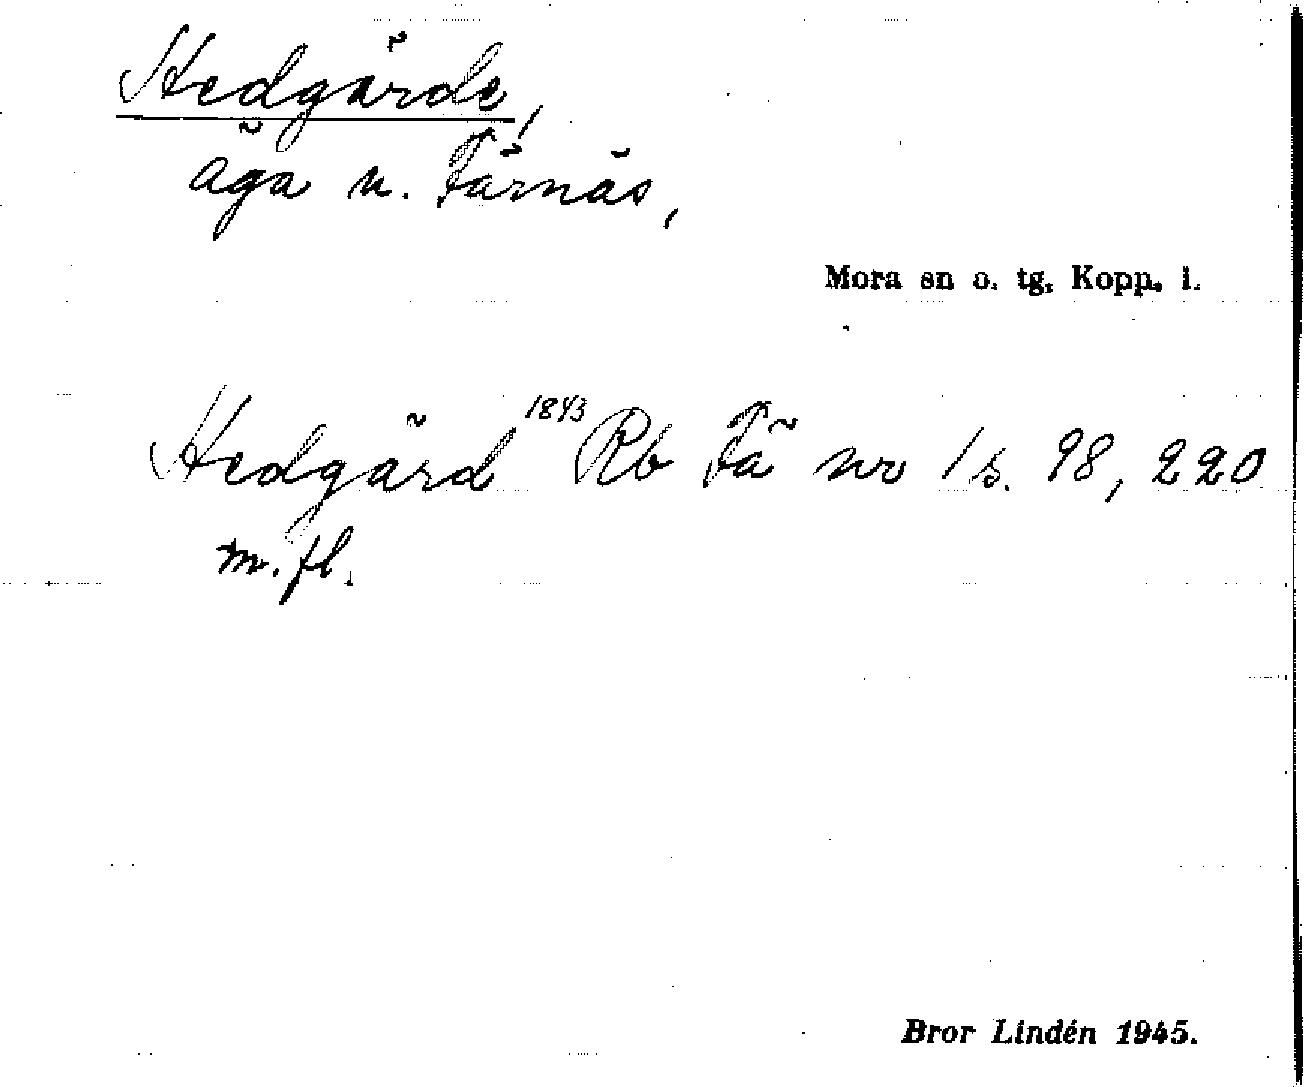 Hedgärde,
äga n. Färnäs,
Mora sn o. tg. Kopp. l.
Hedgärd 1843 Rb Fä nr 1 s. 98, 220
m. fl.
Bror Lindén 1945.